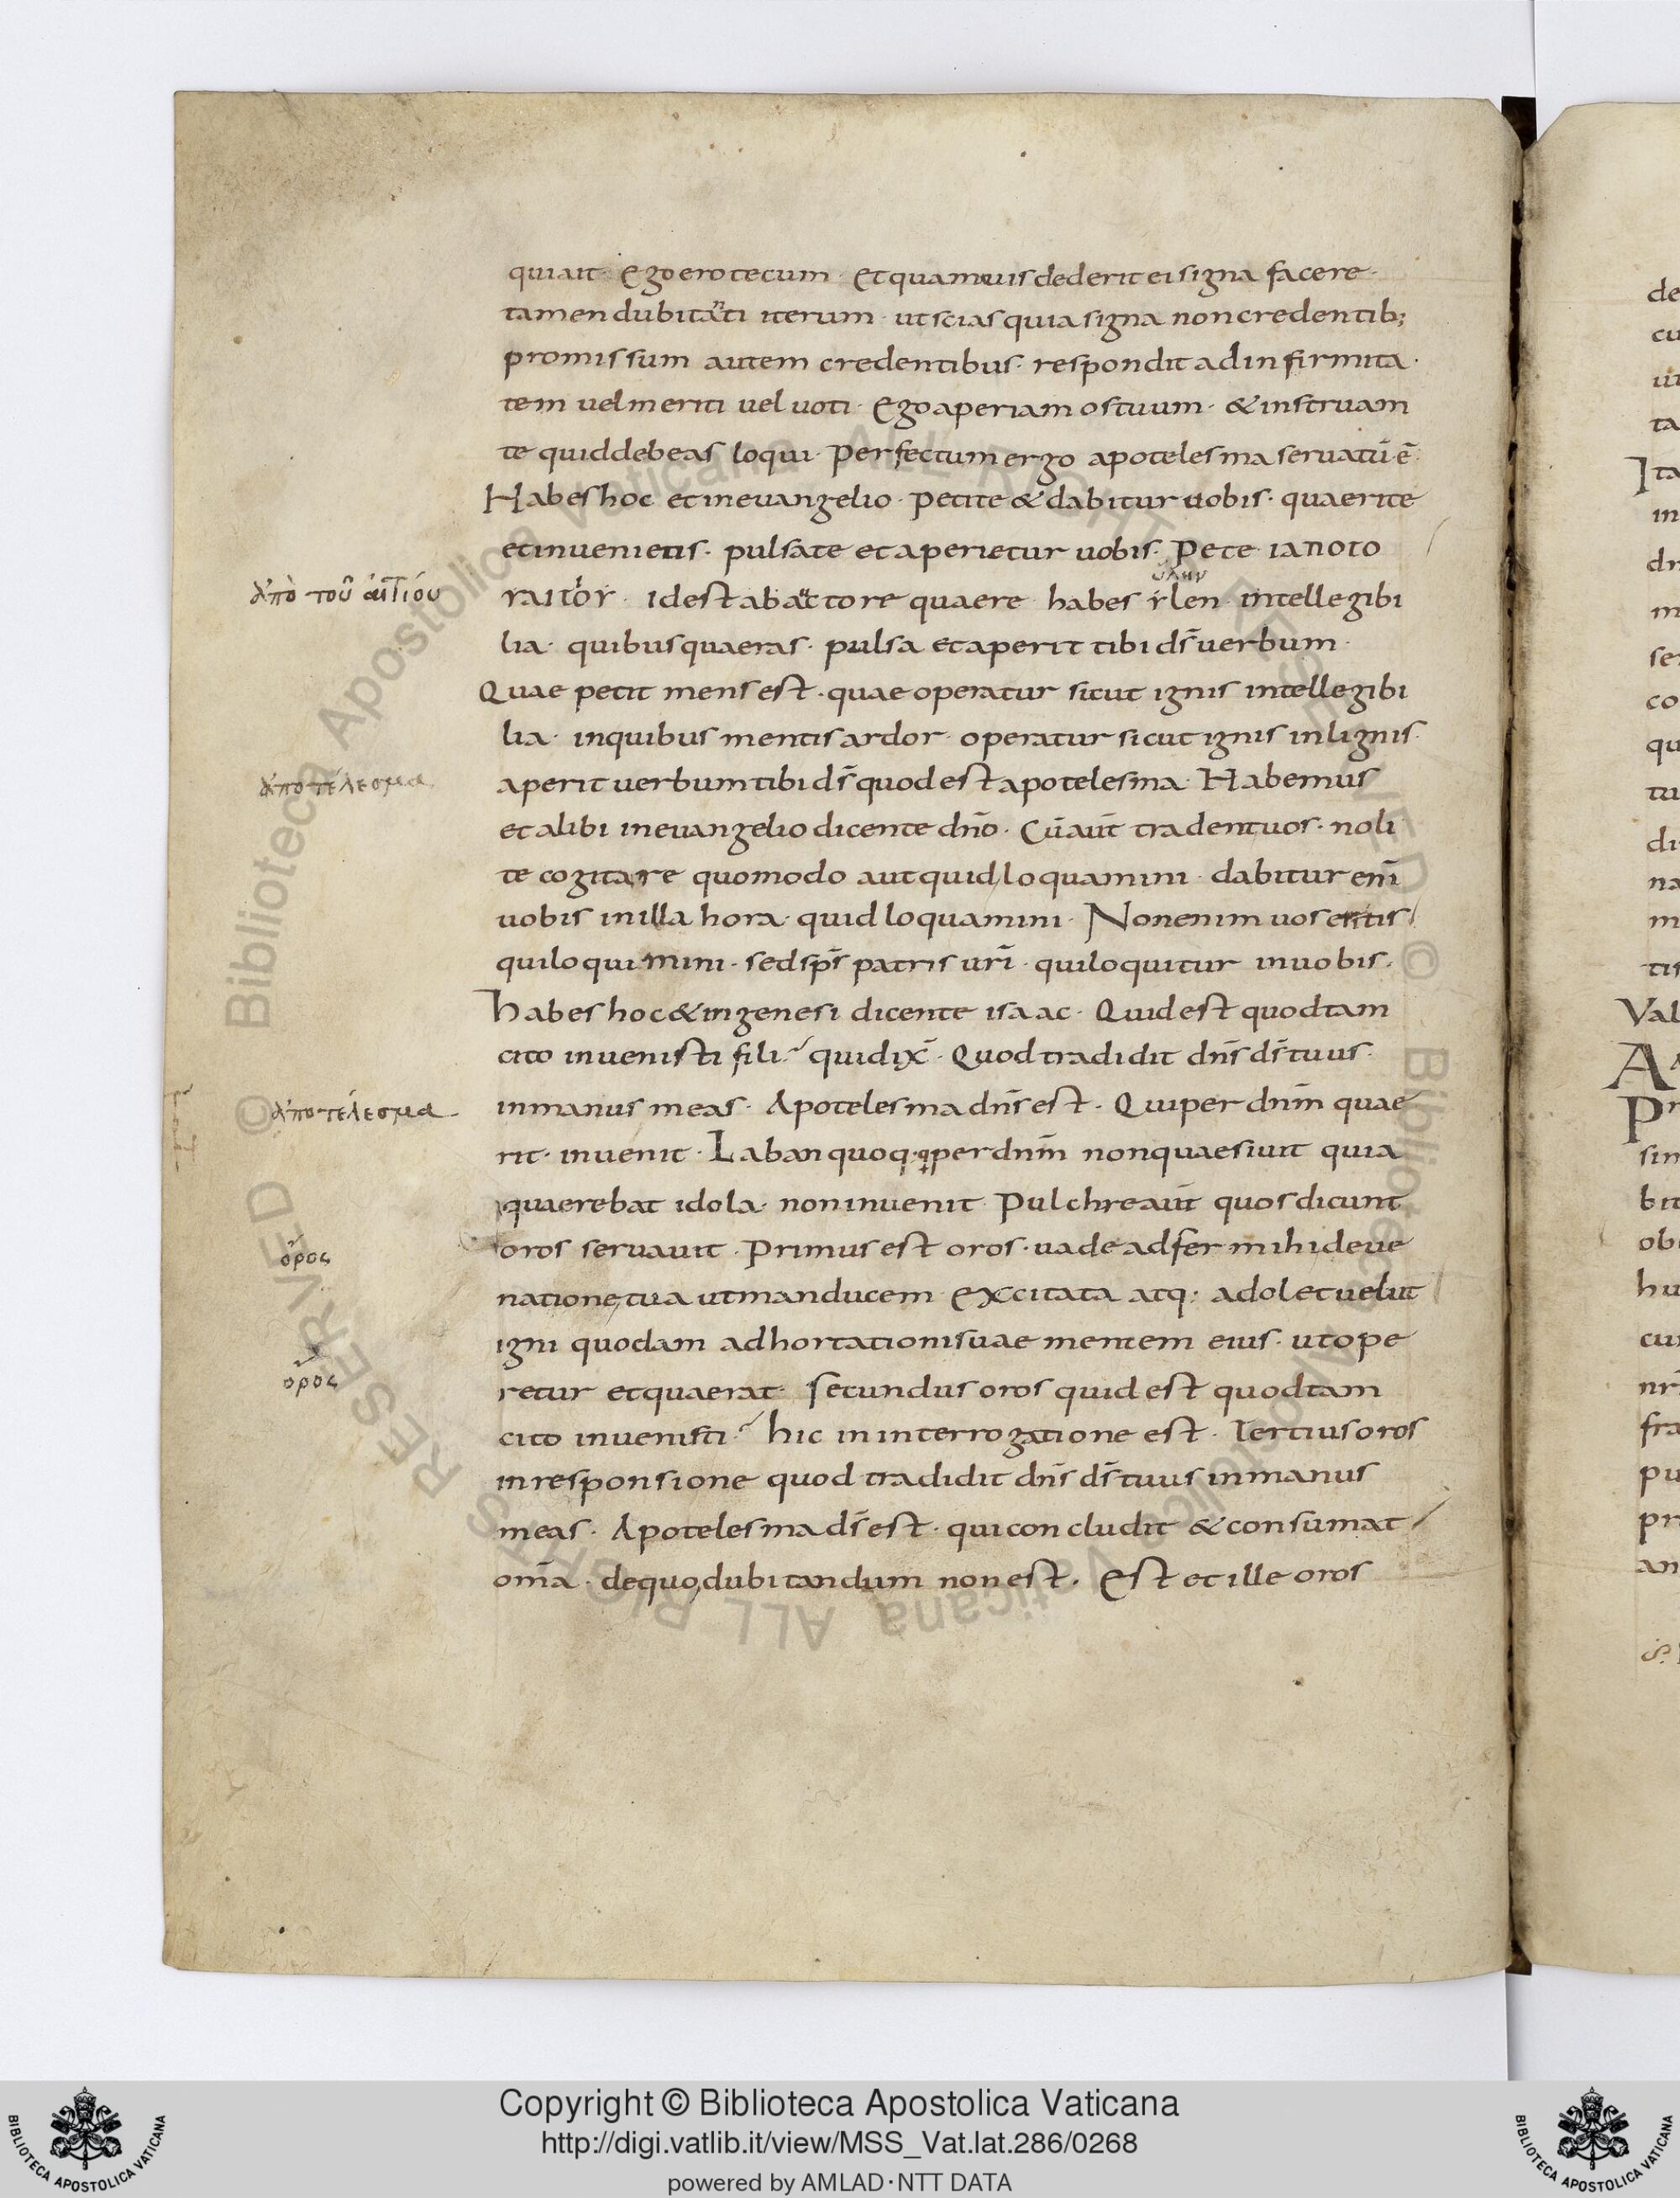 quiait · Ego ero tecum · Et quamuis dederit ei signa facere ·
tamen dubitanti iterum · ut scias quia signa non credentib;
promissum autem credentibus · respondit ad infirmita ·
tem uel meriti uel uoti · Ego aperiam os tuum · & instruam
te quid debeas loqui · perfectum ergo apotelesma seruatū ē ·
Habes hoc et in euangelio · petite & dabitur uobis · quaerite
et inuenietis · pulsate et aperietur uobis · pete
ὕλην
ἀπὸ τοῦ αἰτίου
id est ab auctore quaere · habes ylen · intellegibi
lia · quibus quaeras · pulsa et aperit tibi ds̄ uerbum ·
Quae petit mens est · quae operatur sicut ignis intellegibi
lia · in quibus mentis ardor · operatur sicut ignis in lignis ·
ἀποτέλεσμα
aperit uerbum tibi ds̄ quod est apotelesma · Habemus
et alibi in euangelio dicente dnō · Cū aūt tradent uos · noli
te cogitare quomodo aut quid loquamini · dabitur enī
uobis in illa hora · quid loquamini · Non enim uos estis
qui loquimini · sed sps̄ patris urī · qui loquitur in uobis ·
habes hoc & in genesi dicente isaac · Quid est quod tam
cito inuenisti fili? qui dix̄ · Quod tradidit dns̄ ds̄ tuus ·
ἀποτέλεσμα
in manus meas · Apotelesma dns̄ est · Qui per dnm̄ quae
rit · inuenit · Laban quoq; per dnm̄ non quaesiuit quia
quaerebat idola · non inuenit · Pulchre aūt quos dicunt
ὅρος
oros seruauit · Primus est oros · uade adfer mihi de ue
natione tua ut manducem · excitata atq; adolet uelut
igni quodam adhortationis uae mentem eius · ut ope
ὅρος
retur et quaerat · secundus oros quid est quod tam
cito inuenisti? hic in interrogatione est · Tertius oros
in responsione quod tradidit dns̄ ds̄ tuus in manus
meas · Apotelesma ds̄ est · qui concludit & consumat
omīa · de quo dubitandum non est · Est et ille oros
© Biblioteca Apostolica Vaticana ALL RIGHTS RESERVED
© Biblioteca Apostolica Vaticana ALL RIGHTS RESERVED
Copyright © Biblioteca Apostolica Vaticana
http://digi.vatlib.it/view/MSS_Vat.lat.286/0268
powered by AMLAD · NTT DATA
BIBLIOTECA APOSTOLICA VATICANA
BIBLIOTECA APOSTOLICA VATICANA